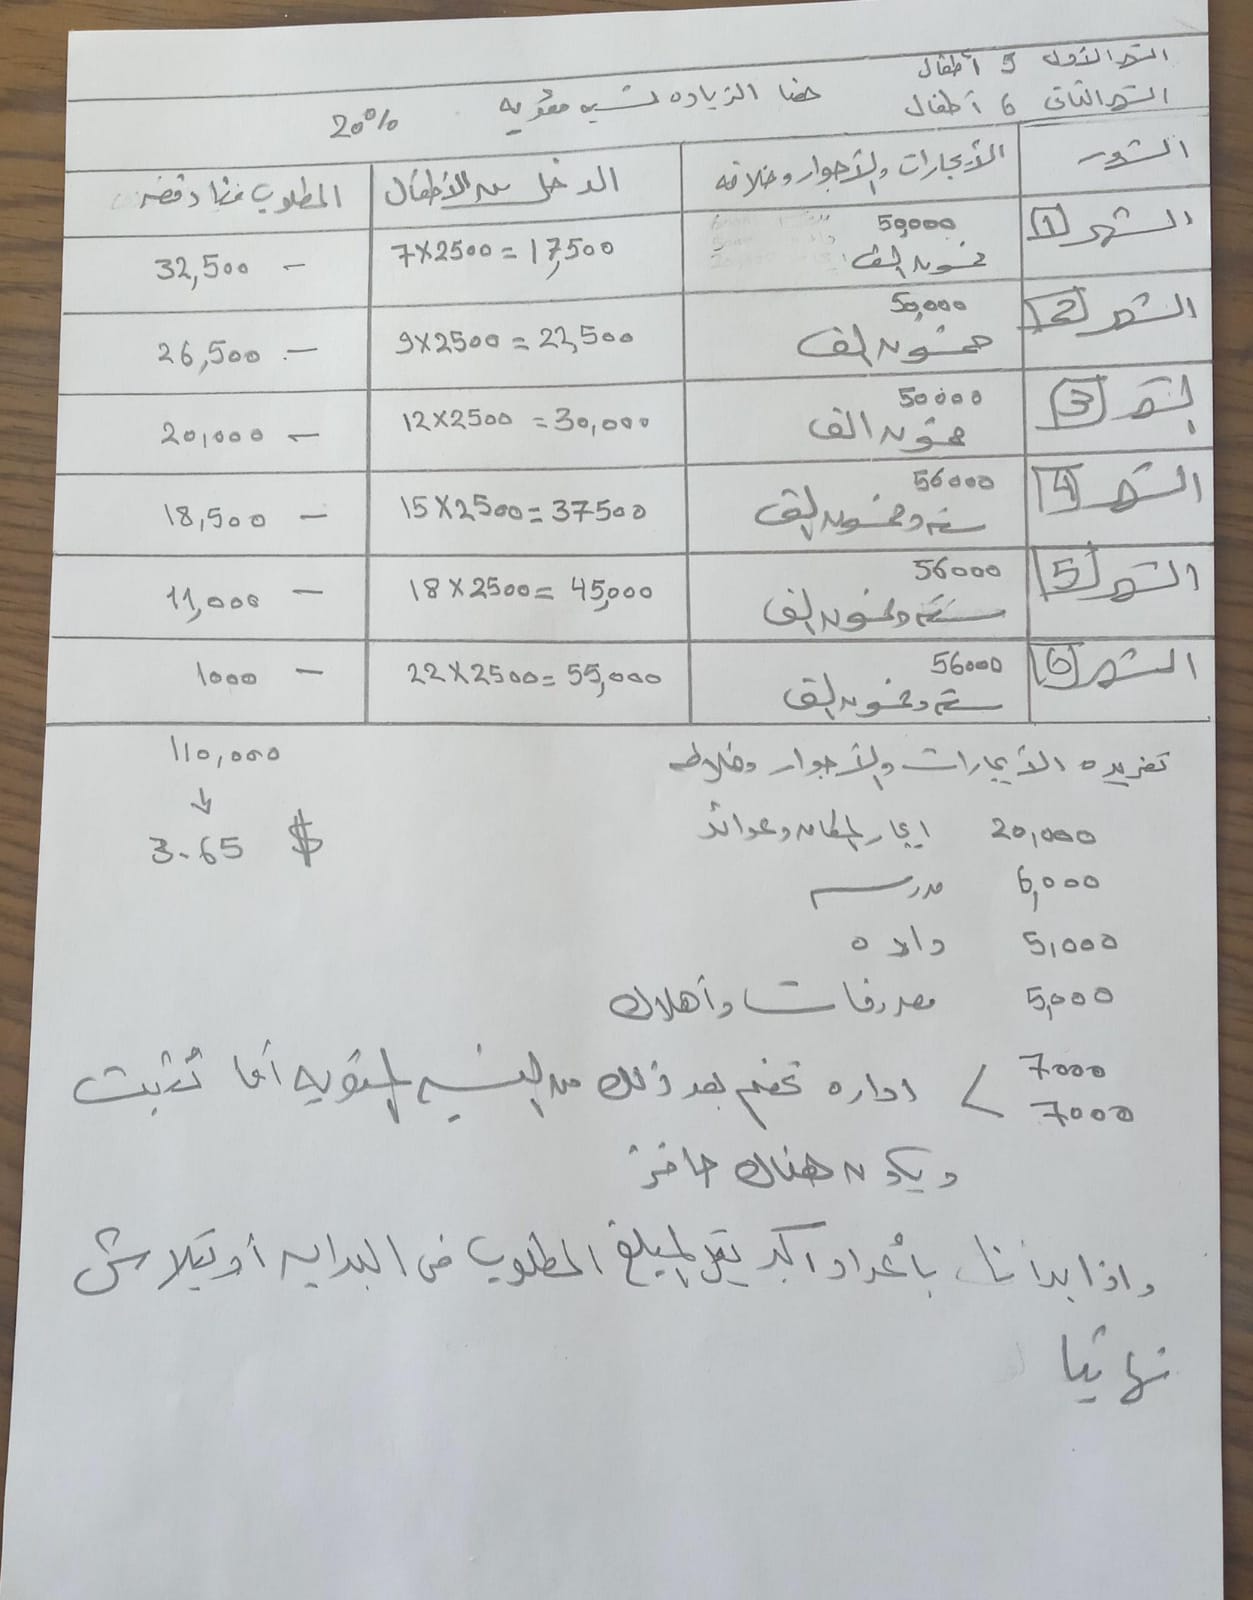 الشهر الأول 5 أطفال
الشهر الثانى 6 أطفال
حضا الزياده نسبه مئويه 20%
الشهور الأيجارات والأجوار وخلافه الدخل من الأطفال المطلوب
الشهر 1 50,000 خمسون الف 7×2500 = 17,500 32,500 –
الشهر 2 50,000 خمسون الف 9×2500 = 22,500 26,500 –
الشهر 3 50000 خمسون الف 12×2500 = 30,000 20,000 –
الشهر 4 56000 سته وخمسون الف 15×2500 = 37500 18,500 –
الشهر 5 56000 سته وخمسون الف 18×2500 = 45,000 11,000 –
الشهر 6 56000 سته وخمسون الف 22×2500 = 55,000 1000 –
110,000
↓
3.65 $
تفريده الأيجارات والأجوار وخلافه
20,000 ايجار المكان وعوائد
6,000 مدرسه
5,000 داده
5,000 مصروفات وأهلاك
7000
7000 > اداره تخصم بعد ذلك من النسبه المئويه أما تثبت
ويكون هناك حافز
واذا بدأنا بأعداد أكبر يقل المبلغ المطلوب فى البدايه أو يتلاشى
نهائيا